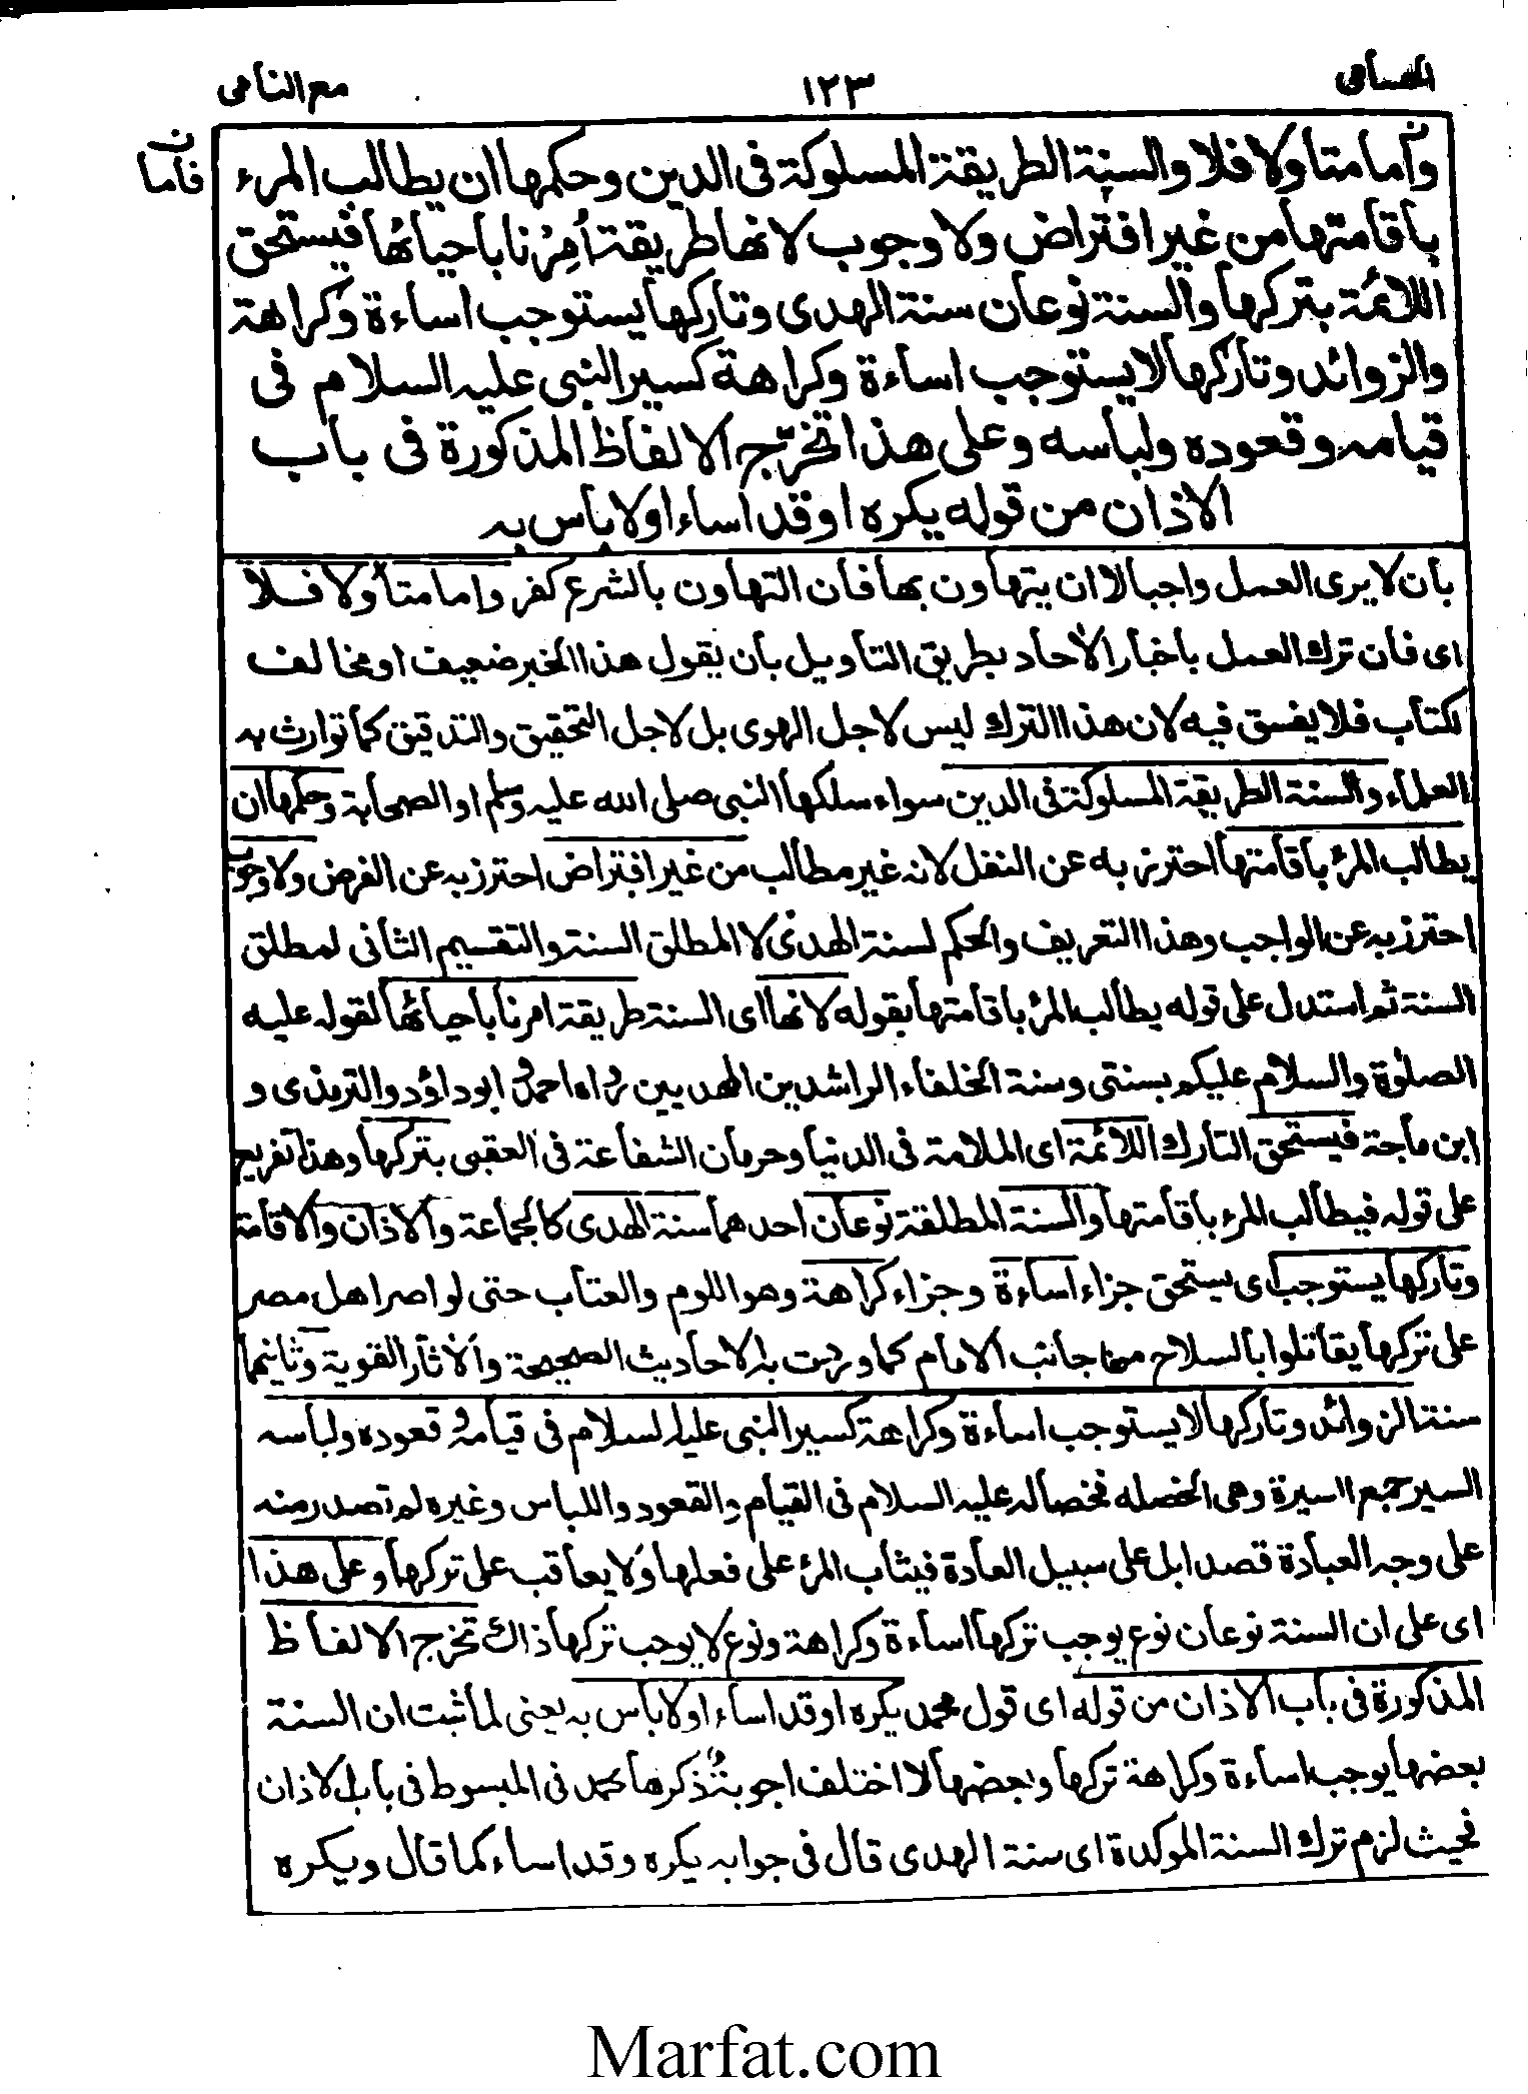 الحسامی ١٢٣ مع النامی
وأما متاولا فلا والسنة الطريقة المسلوكة فی الدين وحكمها ان يطالب المرء
ن فأما
باقامتها من غير افتراض ولا وجوب لانها طريقة أُمِرْنا باحيائها فيستحق
اللائمة بتركها والسنة نوعان سنة الهدی وتاركها يستوجب اساءة وكراهة
والزوائد وتاركها لا يستوجب اساءة وكراهة كسير النبی عليہ السلام فی
قيامہ وقعودہ ولباسه وعلى هذا تخرّج الالفاظ المذكورة فی باب
الاذان من قوله يكرہ اوقد اساء اولا بأس بہ
بأن لا يرى العمل واجبا لا ان يتهاون بها فأن التهاون بالشرع كفر وامامتأولا فلا
ای فان ترك العمل باخبار الأحاد بطريق التأويل بأن يقول هذا الخبر ضعيف اومخالف
لكتاب فلا يفسق فيه لان هذا الترك ليس لاجل الهوى بل لاجل التحقيق والتدقيق كما توارث بہ
العلماء والسنة الطريقة المسلوكة فی الدين سواء سلكها النبی صلى الله عليہ وسلم او الصحابة وحكمها ان
يطالب المرأ بأقامتها احترز به عن النفل لانه غير مطالب من غير افتراض احترز بہ عن الفرض ولا وجوب
احترز بہ عن الواجب وهذا التعريف والحكم لسنة الهدی لا المطلق السنة والتقسيم الثانی لمطلق
السنة ثم استدل على قوله يطالب المرأ باقامتها بقوله لانها ای السنة طريقة امرنا باحيائها لقولہ عليہ
الصلوٰة والسلام عليكم بسنتی وسنة الخلفاء الراشدين المهديين رواہ احمد و ابو داؤد والترمذی و
ابن ماجة فيستحق التارك اللائمة ای الملامة فی الدنيا وحرمان الشفاعة فی العقبى بتركها وهذا تفريع
على قولہ فيطالب المرء باقامتها والسنة المطلقة نوعان احدهما سنة الهدی كالجماعة والاذان والاقامة
وتاركها يستوجب ای يستحق جزاء اساءة وجزاء كراهة وهو اللوم والعتاب حتى لو اصر اهل مصر
على تركها يقاتلوا بالسلاح من جانب الامام كما وردت بہ الاحاديث الصحيحة والأثار القوية وثانيهما
سنة الزوائد وتاركها لا يستوجب اساءة وكراهة كسير النبی عليہ السلام فی قيامہ و قعودہ ولباسه
السير جمع السيرة وهی الخصله فخصالہ عليہ السلام فی القيام والقعود واللباس وغيرہ لم تصدر منہ
على وجہ العبادة قصدا بل على سبيل العادة فيثاب المرأ على فعلها ولا يعاقب على تركها وعلى هذا
ای على ان السنة نوعان نوع يوجب تركها اساءة وكراهة ونوع لا يوجب تركها ذاك تخرج الالفاظ
المذكورة فی باب الاذان من قولہ ای قول محمد يكرہ اوقد اساء اولا بأس بہ يعنی لما ثبت ان السنة
بعضها يوجب اساءة وكراهة تركها وبعضها لا اختلف اجوبتہ ذكرها محمد فی المبسوط فی باب الاذان
فحيث لزم ترك السنة الموكدة ای سنة الهدی قال فی جوابہ يكرہ وقد اساء كما قال ويكرہ
Marfat.com